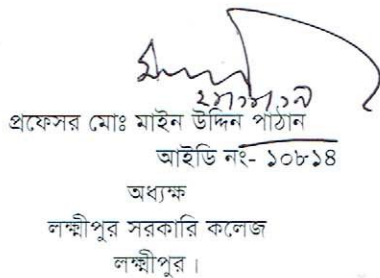 প্রফেসর মোঃ মাইন উদ্দিন পাঠান
আইডি নং- ১০৮১৪
অধ্যক্ষ
লক্ষ্মীপুর সরকারি কলেজ
লক্ষ্মীপুর।